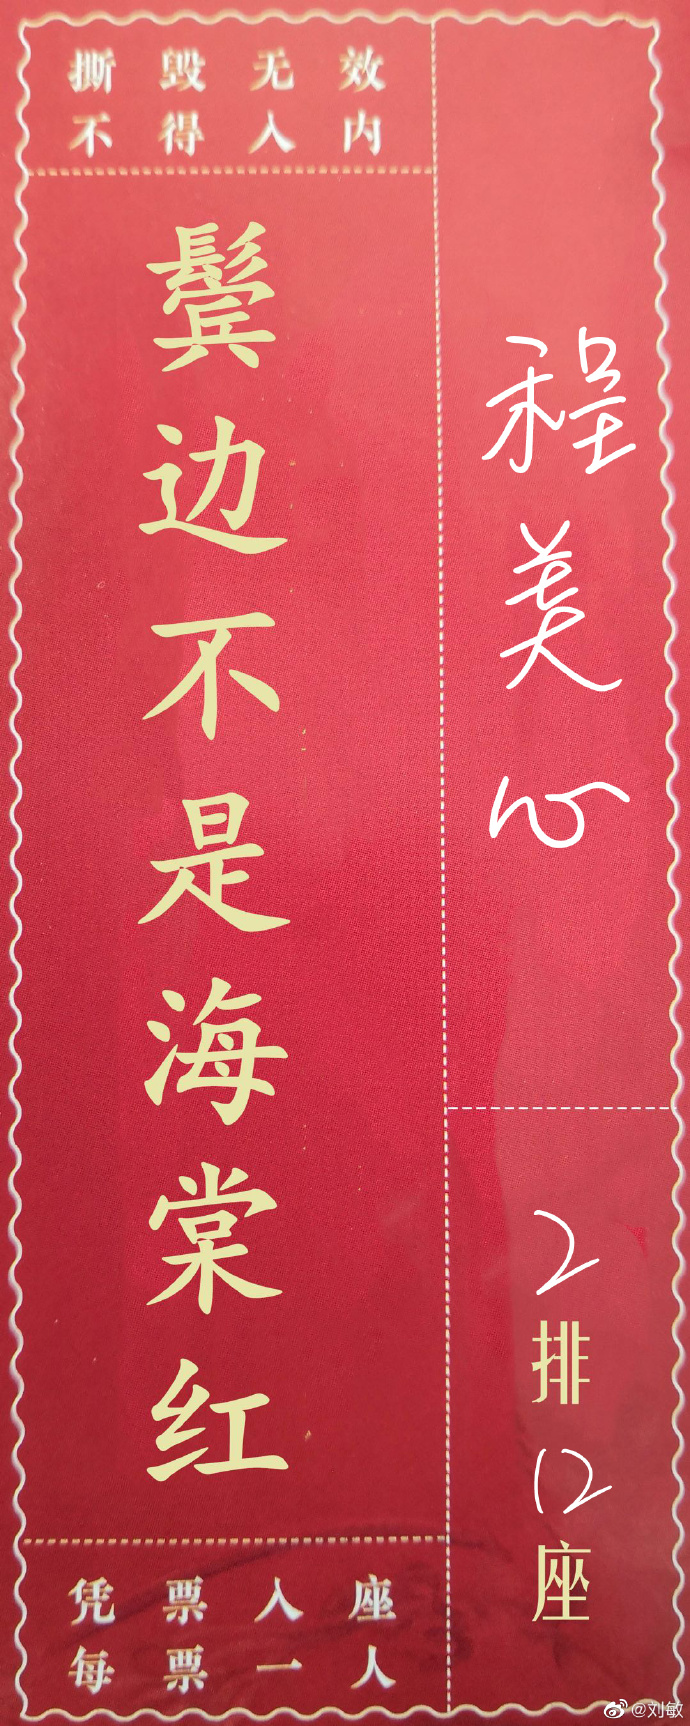 撕毁无效
不得入内
鬓边不是海棠红
凭票入座
每票一人
程美心
2排12座
@刘敏